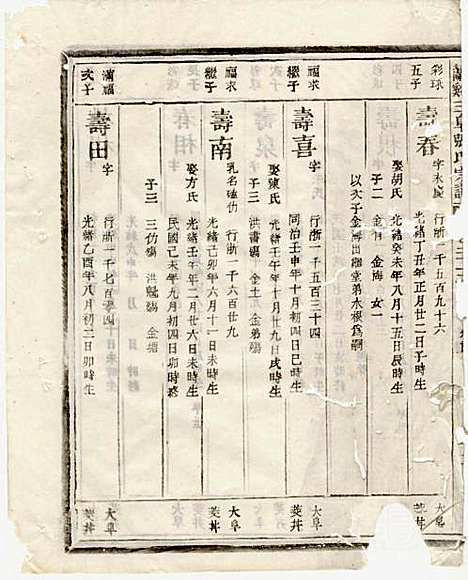 彩球
五子
壽春
字永慶
行浙一千五百九十六
光緒丁丑年正月廿二日子時生
娶胡氏
光緒癸未年八月十五日辰時生
子二
金有
金海
女一
以次子金海出繼堂弟水根爲嗣
大阜
菱井
福求
繼子
壽喜
字
行浙一千五百三十四
同治壬申年十月初四日巳時生
娶陳氏
光緒壬午年十月廿九日戌時生
子三
洪書殤
金土
金弟殤
大阜
菱井
福求
繼子
壽南
乳名
行浙一千六百廿九
光緒己卯年六月十一日未時生
娶方氏
光緒壬午年二月廿六日未時生
民國己未年九月初四日卯時終
子三
三仂殤
洪魁殤
金塘
大阜
菱井
滿福
次子
壽田
字
行浙一千七百零四
光緒乙酉年八月初三日卯時生
大阜
菱井